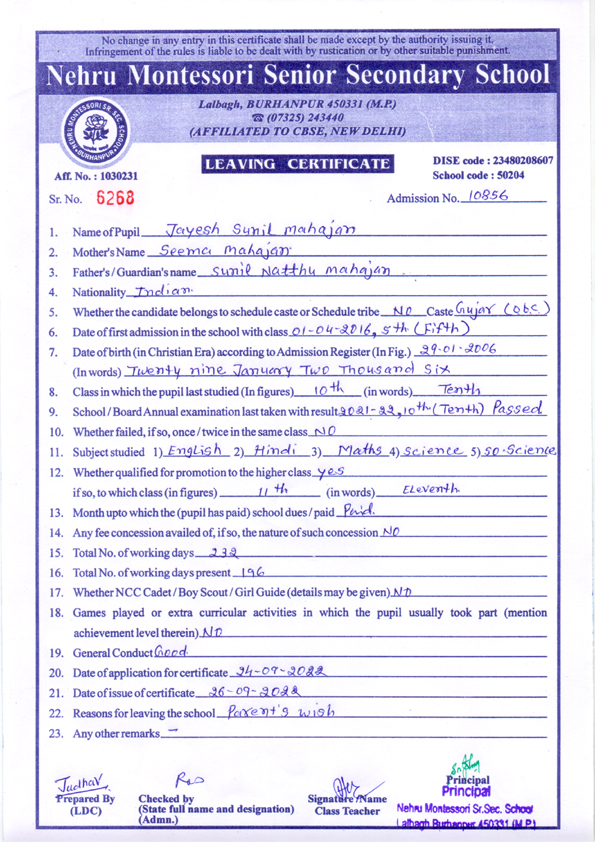 No change in any entry in this certificate shall be made except by the authority issuing it.
Infringement of the rules is liable to be dealt with by rustication or by other suitable punishment.
Nehru Montessori Senior Secondary School
Lalbagh, BURHANPUR 450331 (M.P.)
☎ (07325) 243440
(AFFILIATED TO CBSE, NEW DELHI)
NEHRU MONTESSORI SR. SEC. SCHOOL
BURHANPUR
LEAVING CERTIFICATE
DISE code : 23480208607
Aff. No. : 1030231
School code : 50204
Sr. No. 6268
Admission No. 10856
1. Name of Pupil Jayesh Sunil Mahajan
2. Mother's Name Seema Mahajan
3. Father's / Guardian's name Sunil Natthu Mahajan
4. Nationality Indian
5. Whether the candidate belongs to schedule caste or Schedule tribe NO Caste Gujar (Obc)
6. Date of first admission in the school with class 01-04-2016, 5th (Fifth)
7. Date of birth (in Christian Era) according to Admission Register (In Fig.) 29-01-2006
(In words) Twenty nine January Two Thousand Six
8. Class in which the pupil last studied (In figures) 10th (in words) Tenth
9. School / Board Annual examination last taken with result 2021-22, 10th (Tenth) Passed
10. Whether failed, if so, once / twice in the same class NO
11. Subject studied 1) English 2) Hindi 3) Maths 4) Science 5) SO-Science
12. Whether qualified for promotion to the higher class yes
if so, to which class (in figures) 11th (in words) Eleventh
13. Month upto which the (pupil has paid) school dues / paid Paid.
14. Any fee concession availed of, if so, the nature of such concession NO
15. Total No. of working days 232
16. Total No. of working days present 196
17. Whether NCC Cadet / Boy Scout / Girl Guide (details may be given) NO
18. Games played or extra curricular activities in which the pupil usually took part (mention
achievement level therein) NO
19. General Conduct Good
20. Date of application for certificate 24-09-2022
21. Date of issue of certificate 26-09-2022
22. Reasons for leaving the school Parent's wish
23. Any other remarks —
Prepared By
(LDC)
Checked by
(State full name and designation)
(Admn.)
Signature /Name
Class Teacher
Principal
Principal
Nehru Montessori Sr.Sec. School
Lalbagh Burhanpur 450331 (M.P.)